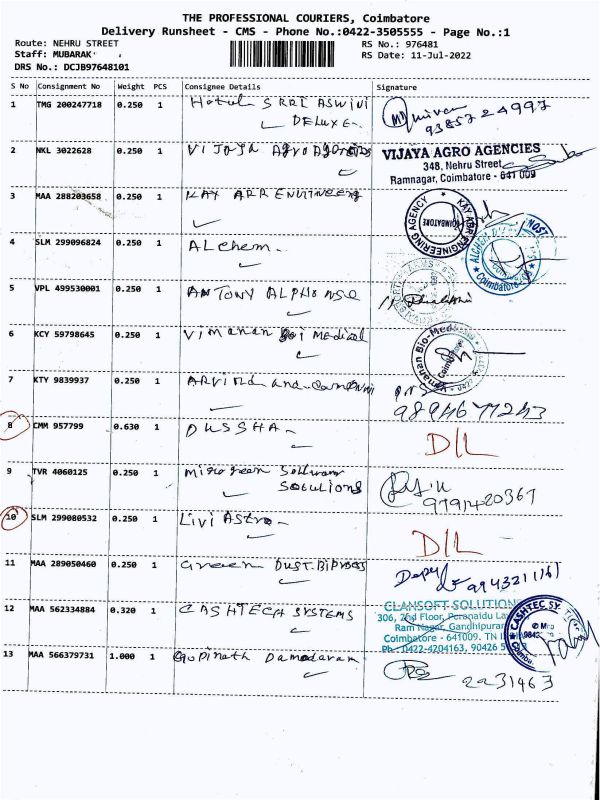 THE PROFESSIONAL COURIERS, Coimbatore
Delivery Runsheet - CMS - Phone No.:0422-3505555 - Page No.:1
Route: NEHRU STREET
RS No.: 976481
Staff: MUBARAK
RS Date: 11-Jul-2022
DRS No.: DCJB97648101
S No Consignment No Weight PCS Consignee Details Signature
1 TMG 200247718 0.250 1 Hotel SRRI ASWINI
DELUXE
9385724997
2 NKL 3022628 0.250 1 Vijaya Agro Agencies
VIJAYA AGRO AGENCIES
348, Nehru Street,
Ramnagar, Coimbatore - 641 009
3 MAA 288203658 0.250 1 KAY ARR ENGINEERING
KAY ARR ENGINEERING AGENCY
COIMBATORE
4 SLM 299096824 0.250 1 ALchem
Coimbatore
5 VPL 499530001 0.250 1 ANTONY ALPHONSE
6 KCY 59798645 0.250 1 Vimanan Boi Medical
Vimanan Bio-Medical
7 KTY 9839937 0.250 1 ARVIND and company
9894671243
8 CMM 957799 0.630 1 DUSSHA
D/L
9 TVR 4060125 0.250 1 Microgreen Software
Solutions
9791420367
10 SLM 299080532 0.250 1 Livi Astro
D/L
11 MAA 289050460 0.250 1 Green DUST.
12 MAA 562334884 0.320 1 CASHTECH SYSTEMS
CLANSOFT SOLUTION
306, 2nd Floor, Peranaidu
Ram Nagar, Gandhipuram
Coimbatore - 641009. TN
Ph : 0422-4204163, 90426
CASHTEC SY
13 MAA 566379731 1.000 1 Gopinath Damodaram
2231463